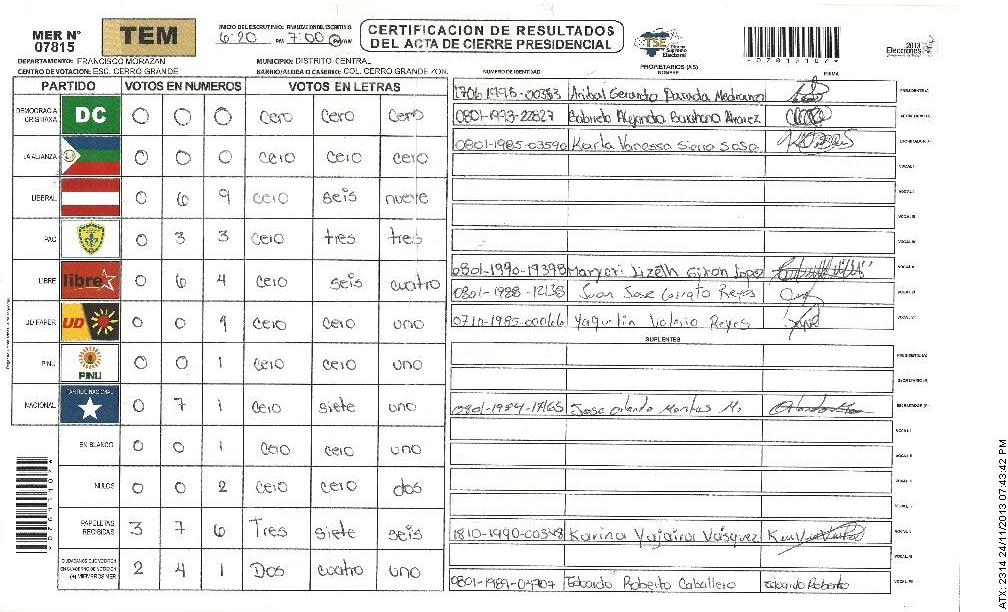 MER N° 07815
TEM
INICIO DEL ESCRUTINIO: FINALIZACION DEL ESCRUTINIO
6:20 PM 7:00 PM
CERTIFICACION DE RESULTADOS
DEL ACTA DE CIERRE PRESIDENCIAL
TSE Tribunal Supremo Electoral
*0781510?*
2013
Elecciones
DEPARTAMENTO: FRANCISCO MORAZAN
MUNICIPIO: DISTRITO CENTRAL
CENTRO DE VOTACION: ESC. CERRO GRANDE
BARRIO/ALDEA O CASERIO: COL. CERRO GRANDE ZON.
PROPIETARIOS (AS)
NUMERO DE IDENTIDAD NOMBRE FIRMA
PARTIDO VOTOS EN NUMEROS VOTOS EN LETRAS
DEMOCRACIA CRISTIANA DC 0 0 0 cero cero cero
LA ALIANZA 0 0 0 cero cero cero
LIBERAL 0 6 9 cero seis nueve
PAC 0 3 3 cero tres tres
LIBRE libre 0 6 4 cero seis cuatro
UD-FAPER UD 0 0 1 cero cero uno
PINU PINU 0 0 1 cero cero uno
NACIONAL PARTIDO NACIONAL 0 7 1 cero siete uno
EN BLANCO 0 0 1 cero cero uno
NULOS 0 0 2 cero cero dos
PAPELETAS RECIBIDAS 3 7 6 Tres siete seis
CIUDADANOS QUE VOTARON EN CUADERNO DE VOTACION (+) MIEMBROS MER 2 4 1 Dos cuatro uno
Anibal Gerardo Parada Medrano PRESIDENTE (A)
0801-1993-22827 Gabriela Alejandra Barahona Alvarez SECRETARIO (A)
0801-1985-03590 Karla Vanessa Sierra Sosa ESCRUTADOR (A)
VOCAL I
VOCAL II
VOCAL III
VOCAL IV
0801-1990-19398 Maryori Lizeth Giron Lopez VOCAL V
0801-1988-12138 Juan Jose Reyes VOCAL VI
0710-1985-00066 Yaquelin Valerio Reyes VOCAL VII
SUPLENTES
PRESIDENTE (A)
SECRETARIO (A)
0801-1984-17165 Jose Orlando Montes M. ESCRUTADOR (A)
VOCAL I
VOCAL II
VOCAL III
VOCAL IV
1810-1990-00348 Karina Yajaira Vasquez VOCAL V
VOCAL VI
Edoardo Roberto Caballero Edoardo Roberto VOCAL VII
ATX: 2314 24/11/2013 07:43:42 PM